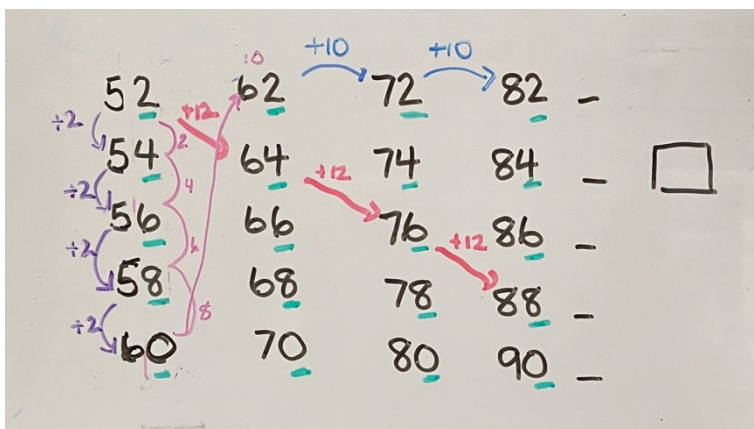 10 +10 +10
52 62 72 82 _
÷2 +12
54 2 64 74 84 _
÷2 4 +12
56 66 76 86 _
÷2 6 +12
58 68 78 88 _
÷2 8
60 70 80 90 _